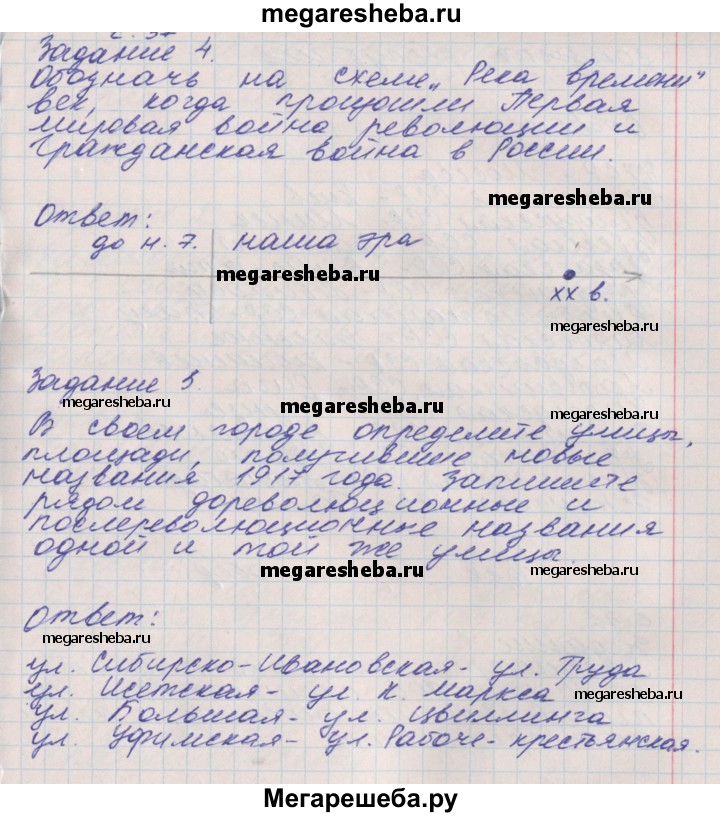 megaresheba.ru
с. 37
Задание 4.
Обозначь на схеме „Река времени"
век, когда прошли Первая
мировая война, революции и
Гражданская война в России.
megaresheba.ru
Ответ:
до н. э. наша эра
megaresheba.ru
XX в.
megaresheba.ru
Задание 5.
megaresheba.ru
megaresheba.ru
megaresheba.ru
В своем городе определите улицы,
площади, получившие новые
названия 1917 года. Запишите
рядом дореволюционные и
послереволюционные названия
одной и той же улицы.
megaresheba.ru
megaresheba.ru
Ответ:
megaresheba.ru
ул. Сибирско-Ивановская- ул. Труда
ул. Исетская- ул. К. Маркса
megaresheba.ru
ул. Большая- ул. Цвиллинга
ул. Уфимская- ул. Рабоче-крестьянская.
Мегарешеба.ру